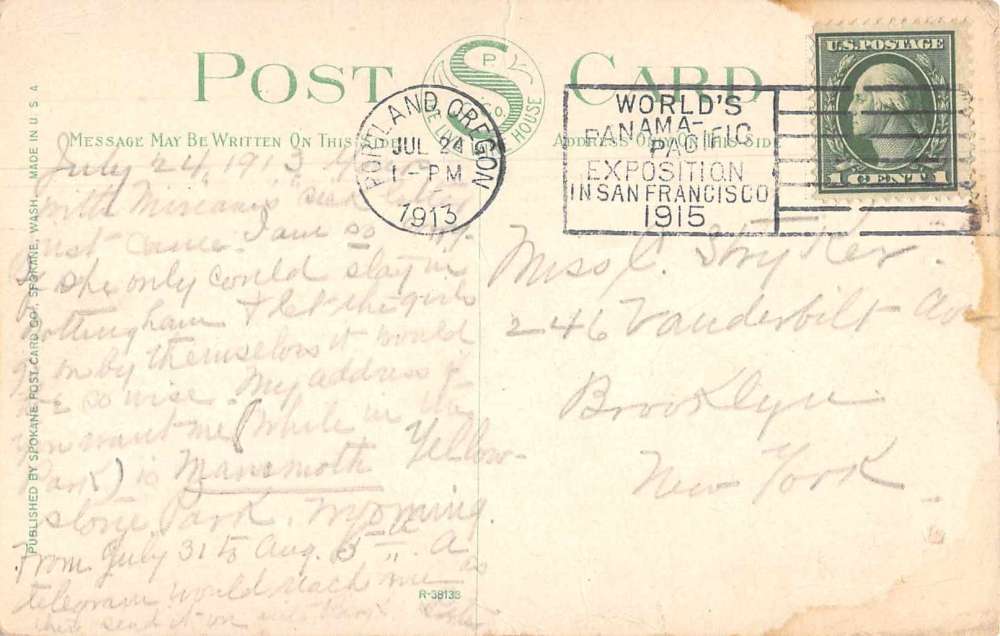 POST CARD
S
P.
Co.
HOUSE
MESSAGE MAY BE WRITTEN ON THIS SIDE
ADDRESS ONLY ON THIS SIDE
PORTLAND, OREGON
JUL 24
1-PM
1913
WORLD'S
PANAMA-PACIFIC
EXPOSITION
IN SAN FRANCISCO
1915
U.S. POSTAGE
1 CENT 1
PUBLISHED BY SPOKANE POST CARD CO., SPOKANE, WASH. MADE IN U S A
July 24, 1913.
with letter
just came. I am so
she only could stay in
Nottingham & let the girls
go on by themselves it would
be so wise. My address if
you want me (while in the
Park) is Mammoth Yellow-
stone Park, Wyoming
From July 31 to Aug. 5th. A
telegram would reach me as
send it on
Miss C. Stryker.
246 Vanderbilt Av
Brooklyn
New York
R-38133